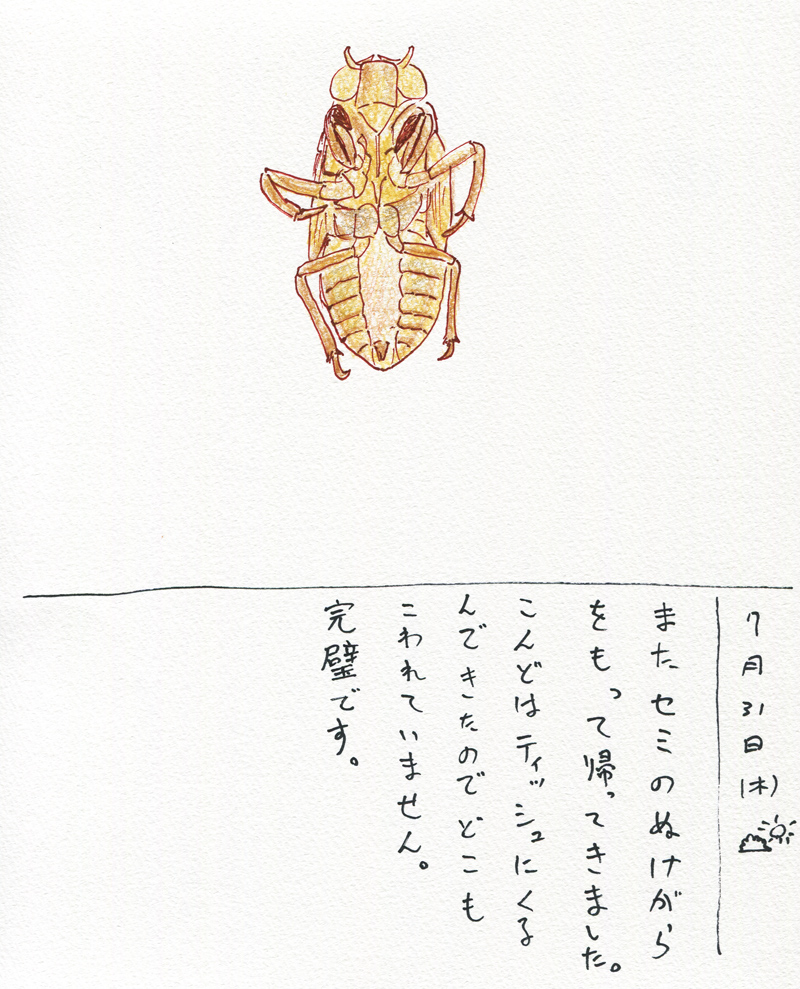 7月31日(木)
またセミのぬけがら
をもって帰ってきました。
こんどはティッシュにくる
んできたのでどこも
こわれていません。
完璧です。